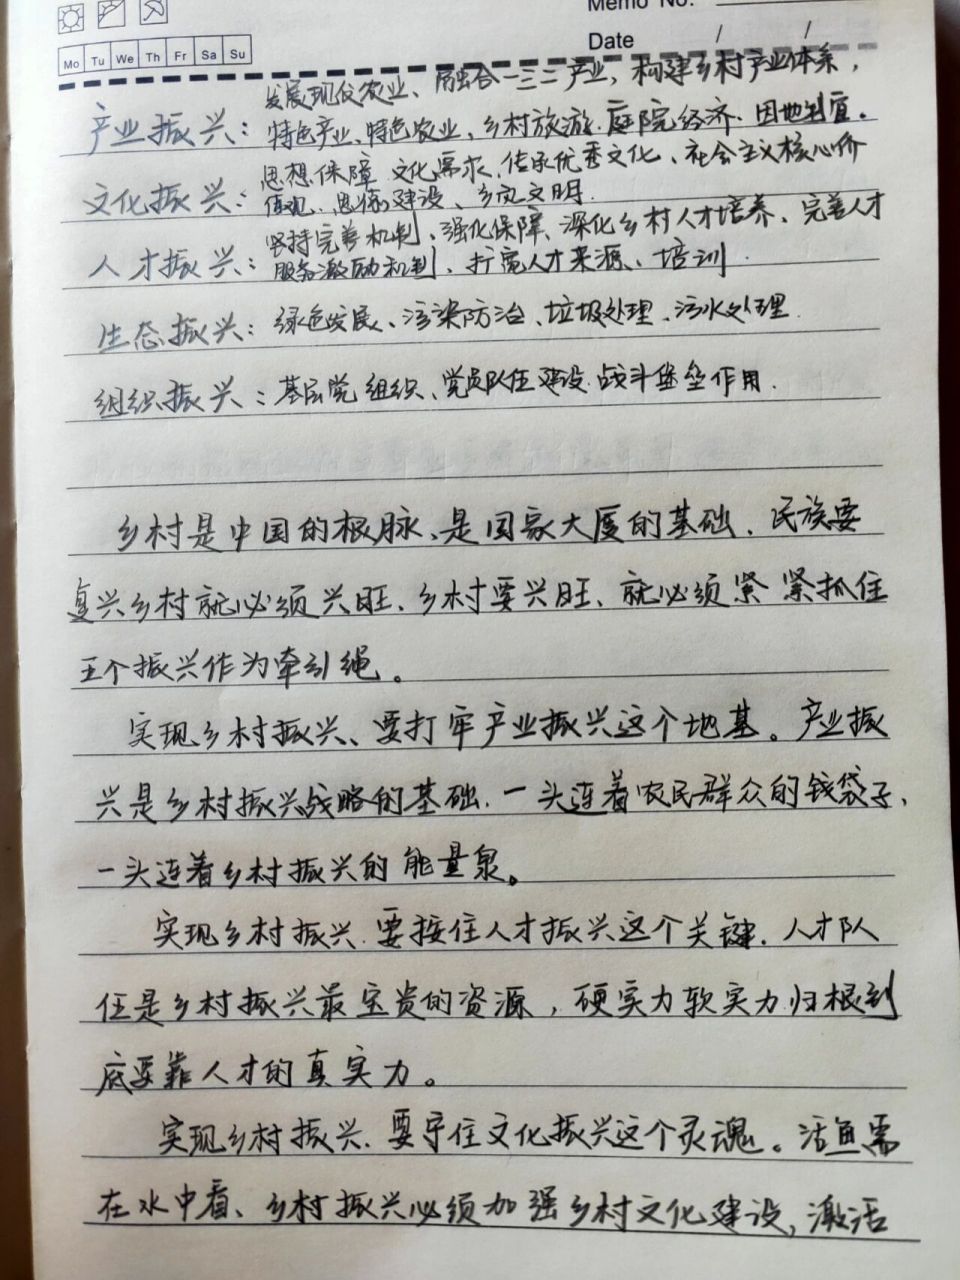 Memo No.
Mo Tu We Th Fr Sa Su
Date / /
发展现代农业、融合一三二产业，构建乡村产业体系，
产业振兴：特色产业、特色农业、乡村旅游、庭院经济、因地制宜。
思想保障 文化需求、传承优秀文化、社会主义核心价
文化振兴：值观、思想建设、乡风文明.
坚持完善机制、强化保障、深化乡村人才培养、完善人才
人才振兴：服务激励机制、扩宽人才来源、培训.
生态振兴：绿色发展、污染防治、垃圾处理、污水处理.
组织振兴：基层党组织、党员队伍建设、战斗堡垒作用.
乡村是中国的根脉、是国家大厦的基础、民族要
复兴乡村就必须兴旺、乡村要兴旺、就必须紧紧抓住
五个振兴作为牵引绳。
实现乡村振兴、要打牢产业振兴这个地基。产业振
兴是乡村振兴战略的基础、一头连着农民群众的钱袋子、
一头连着乡村振兴的能量泉。
实现乡村振兴、要按住人才振兴这个关键、人才队
伍是乡村振兴最宝贵的资源，硬实力软实力归根到
底要靠人才的真实力。
实现乡村振兴、要守住文化振兴这个灵魂。活鱼需
在水中看、乡村振兴必须加强乡村文化建设，激活